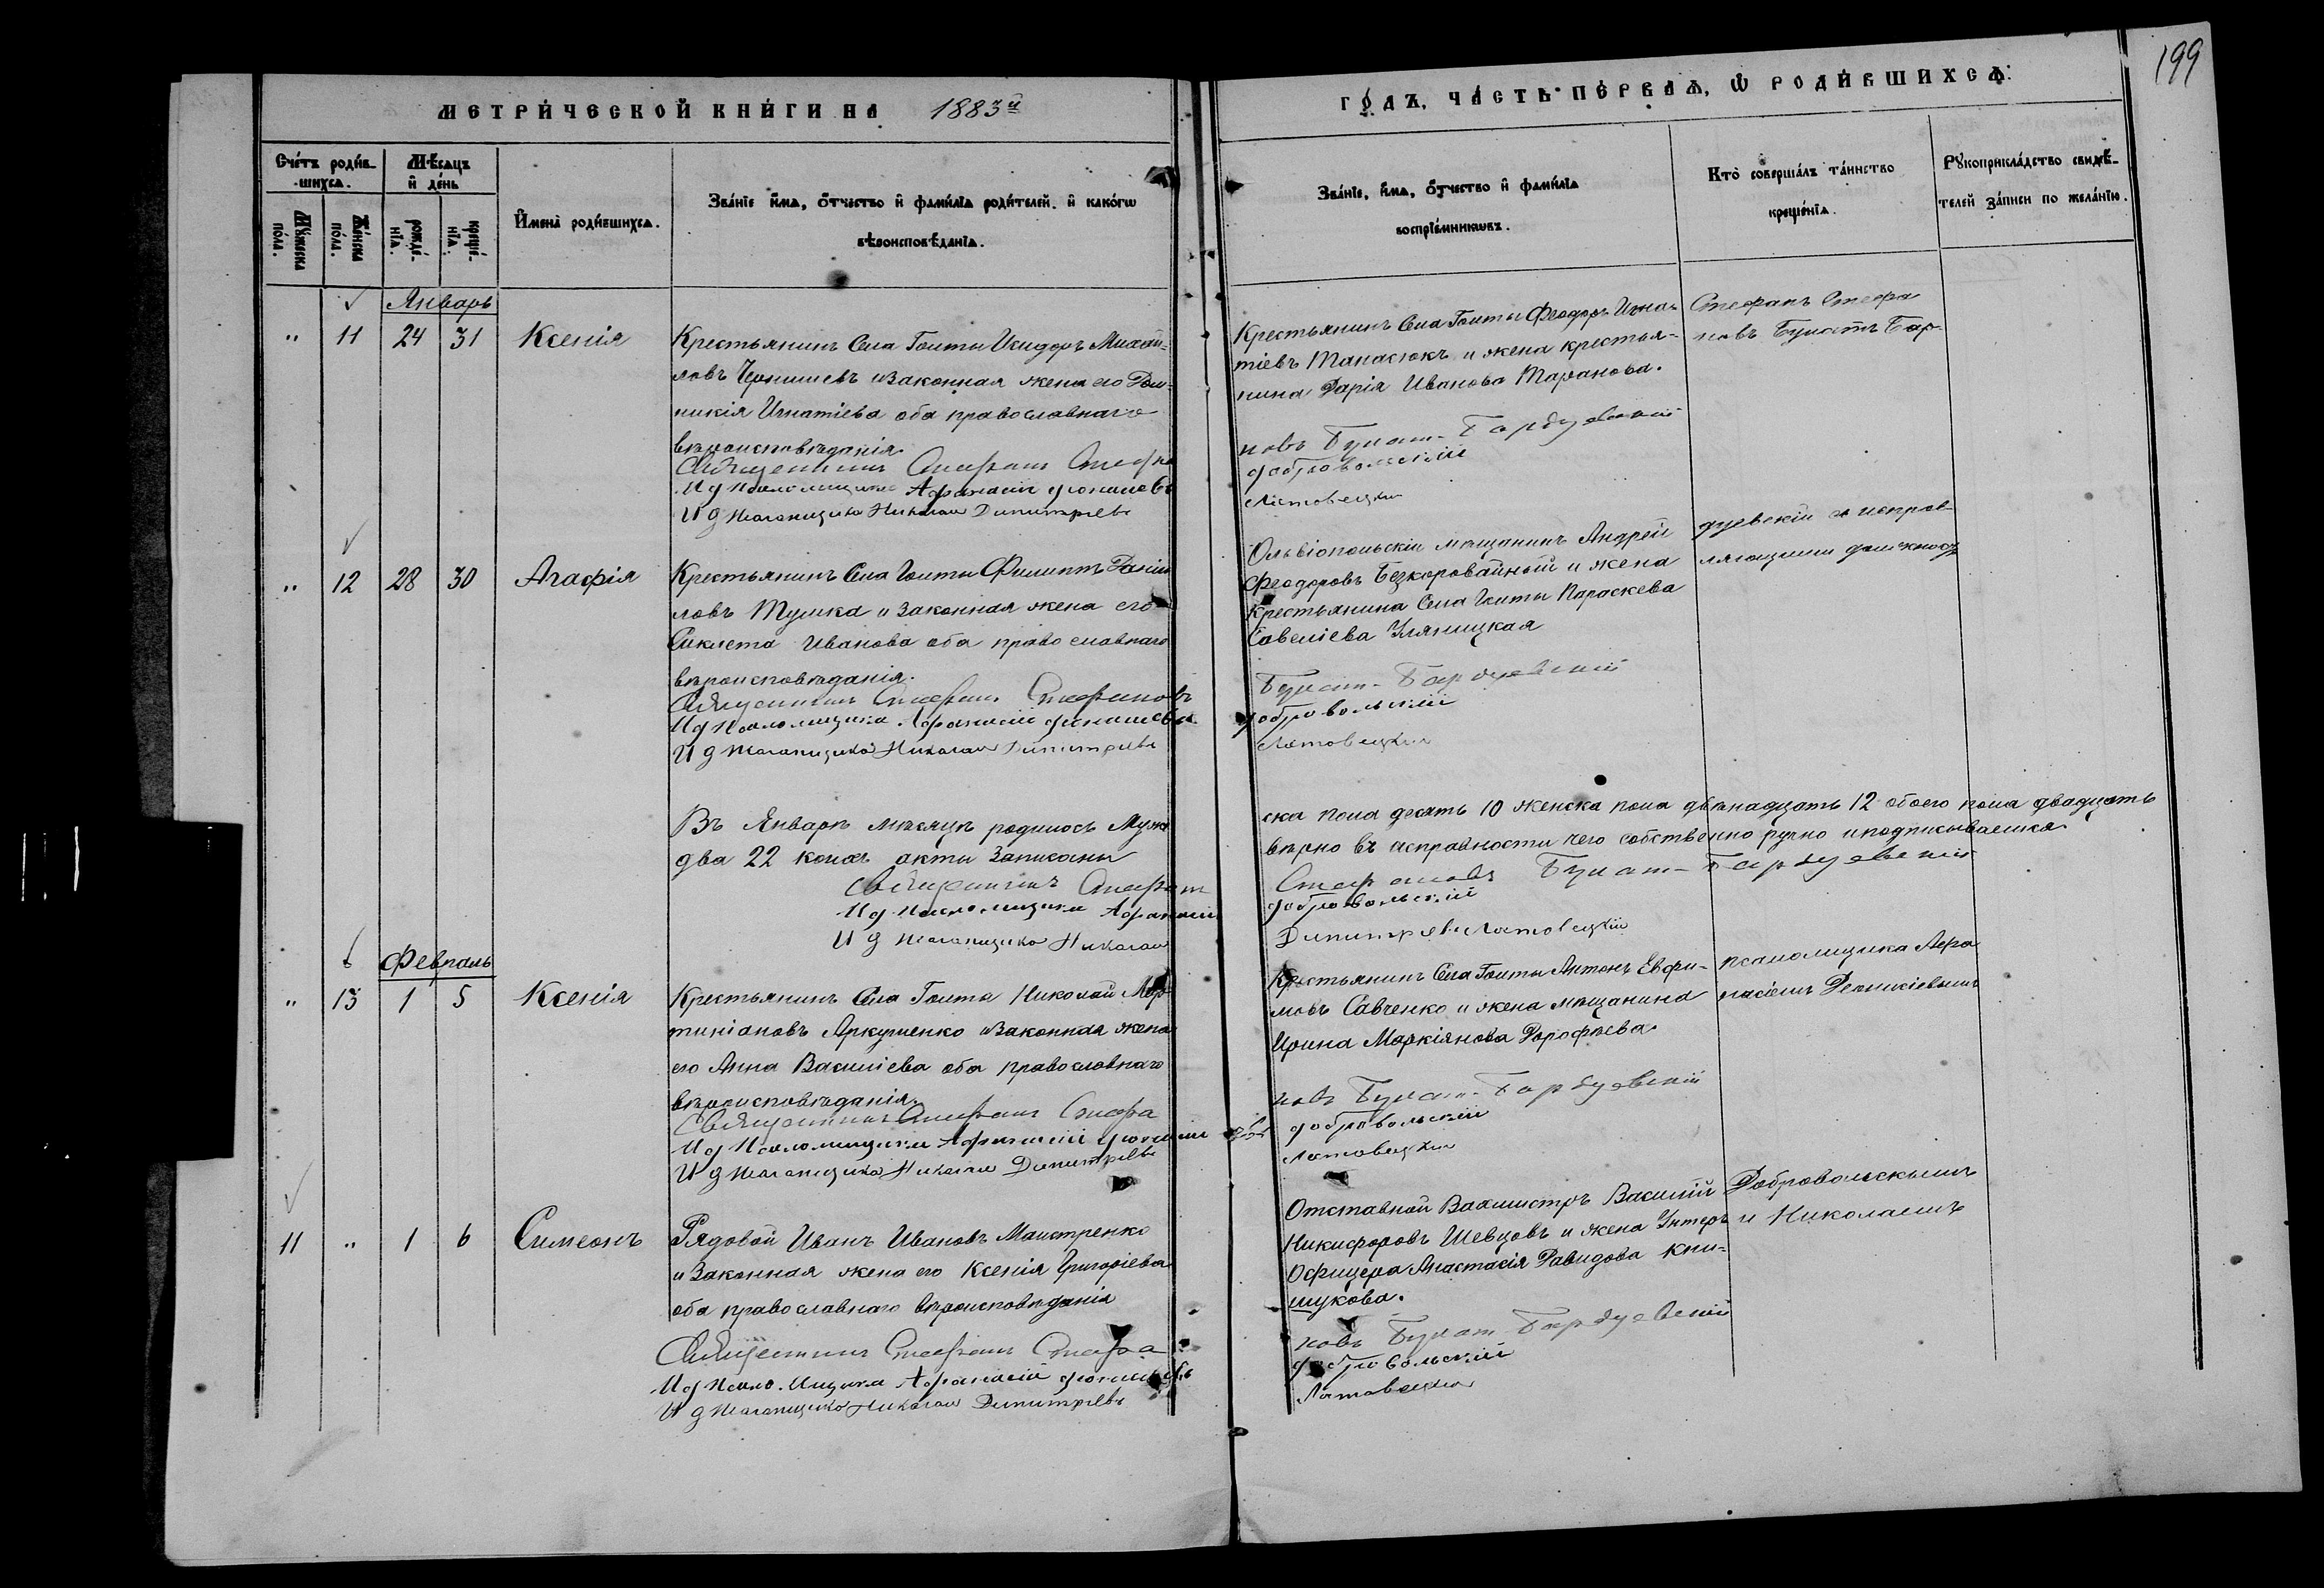 199
МЕТРИ́ЧЕСКОЙ КНИ́ГИ НА 1883й
ГО́ДЪ, ЧА́СТЬ ПЕ́РВАѦ, Ѡ҆ РОДИ́ВШИХСѦ:
Сче́тъ роди́в-
шихсѧ.
Мѣ́сѧцъ
и҆ де́нь
Мꙋ́жеска
по́ла.
Же́нска
по́ла.
рожде́-
нїѧ.
креще́-
нїѧ.
И҆мена̀ роди́вшихсѧ.
Зва́нїе и҆́мѧ, ѻ҆́тчество и҆ фами́лїѧ роди́телей. и҆ како́гѡ
вѣроисповѣ́данїѧ.
Зва́нїе, и҆́мѧ, ѻ҆́тчество и҆ фами́лїѧ
воспрїе́мникѡвъ.
Кто̀ соверша́лъ та́инство
креще́нїѧ.
Рꙋкоприкла́дство свидѣ́-
телей за́писи по жела́нїю.
Январь
" 11 24 31 Ксенія
Крестьянинъ Села Гоиты Исидоръ Михай-
ловъ Чернишевъ и законная жена его
никія Игнатіева оба православнаго
вѣроисповѣданія.
Священникъ Стефанъ Стефа
И д Псаломщика Афанасій
И д Псаломщика Николай Димитріевъ
Крестьянинъ Села Гоиты Феодоръ Игна-
тіевъ Танасюкъ и жена крестья-
нина Дарія Иванова Таранова.
новъ Булат-Бардуевский
Добровольский
Лятовецкий
Стефанъ Стефа
новъ Булатъ Бар-
" 12 28 30 Агафія
Крестьянинъ Села Гоиты Филиппъ Даніи
ловъ Тулика и законная жена его
Синклета Иванова оба православнаго
вѣроисповѣданія.
Священникъ Стефанъ Стефановъ
И д Псаломщика Афанасій
И д Псаломщика Николай Димитріевъ
Ольвіопольскій мѣщанинъ Андрей
Феодоровъ Безкоровайный и жена
крестьянина Села Гоиты Параскева
Савеліева Уляницкая
Булат-Бардуевский
Добровольский
Лятовецкий
дуевскій съ исправ-
ляющими должность
Въ Январѣ мѣсяцѣ родилось Муже
ска пола десять 10 женска пола двѣнадцать 12 обоего пола двадцать
два 22 коихъ акты записаны
вѣрно въ исправности чего собственно ручно и подписываемся.
Священникъ Стефан
Стефановъ Булат-Бардуевский
И д Псаломщика Афанасий
Добровольский
И д Псаломщика Николай
Димитриевъ Лятовецкий
Февраль
" 13 1 5 Ксенія
Крестьянинъ Села Гоиты Николай Мар-
тиніановъ Аркушенко и законная жена
его Анна Василіева оба православнаго
вѣроисповѣданія.
Священникъ Стефанъ Стефа
И д Псаломщика Афанасий
И д Псаломщика Николай Димитріевъ
Крестьянинъ Села Гоиты Антонъ Евфи-
мовъ Савченко и жена мѣщанина
Ирина Маркіянова Дорофѣева.
новъ Булат-Бардуевский
Добровольский
Лятовецкий
псаломщика Афа
насіемъ Діонисіевымъ
11 " 1 6 Симеонъ
Рядовой Иванъ Ивановъ Маистренко
и законная жена его Ксенія Григоріева
оба православнаго вѣроисповѣданія
Священникъ Стефанъ Стефа
И д Псаломщика Афанасій
И д Псаломщика Николай Димитріевъ
Отставной Вахмистръ Василій
Никифоровъ Шевцовъ и жена Унтеръ
Офицера Анастасія Давидова Кни-
шукова.
новъ Булат Бардуевский
Добровольский
Лятовецкий
Добровольскимъ
и Николаемъ